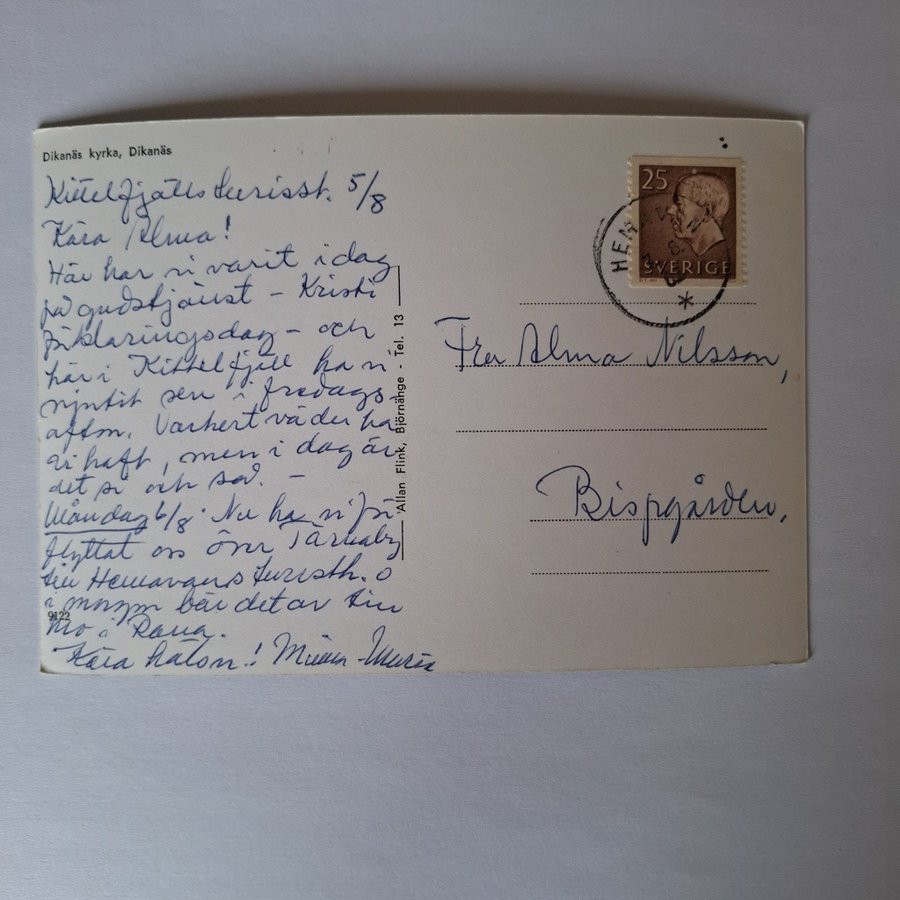 Dikanäs kyrka, Dikanäs
Kittelfjälls turistst. 5/8
Kära Alma!
Här har vi varit i dag
på gudstjänst – Kristi
förklaringsdag – och
här i Kittelfjäll ha vi
njutit sen i fredags-
afton. Vackert väder ha
vi haft, men i dag är
det si och så. –
Måndag 6/8. Nu ha vi
flyttat oss över Tärnaby
till Hemavans turisth. o
i morgon bär det av till
Mo i Rana.
Kära hälsn.! Maria
9122
Allan Flink, Björnänge - Tel. 13
25
SVERIGE
HEMAVAN
Fru Alma Nilsson,
Bispgården,